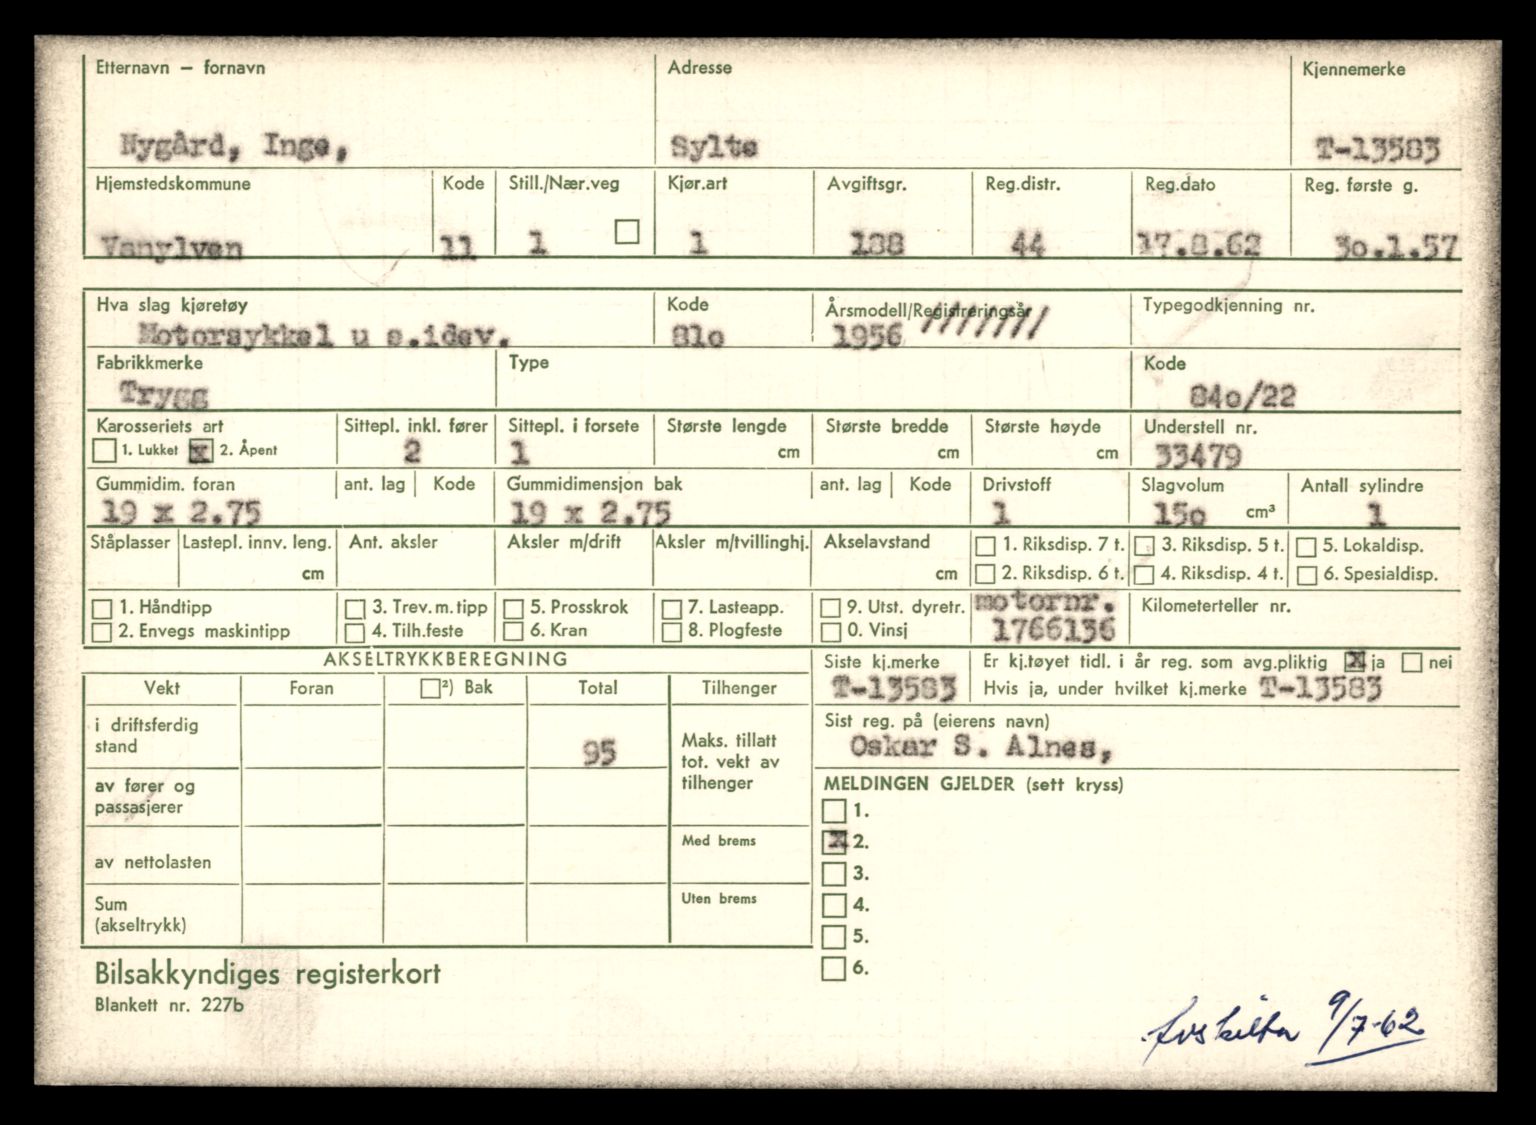 Etternavn – fornavn Adresse Kjennemerke
Nygård, Inge, Sylte T-13583
Hjemstedskommune Kode Still./Nær.veg Kjør.art Avgiftsgr. Reg.distr. Reg.dato Reg. første g.
Vanylven 11 1 1 188 44 17.8.62 3o.1.57
Hva slag kjøretøy Kode Årsmodell/Registreringsår Typegodkjenning nr.
Motorsykkel u s.idev. 81o 1956 ///////
Fabrikkmerke Type Kode
Trygg 84o/22
Karosseriets art Sittepl. inkl. fører Sittepl. i forsete Største lengde Største bredde Største høyde Understell nr.
1. Lukket x 2. Åpent 2 1 cm cm cm 33479
Gummidim. foran ant. lag Kode Gummidimensjon bak ant. lag Kode Drivstoff Slagvolum Antall sylindre
19 x 2.75 19 x 2.75 1 15o cm³ 1
Ståplasser Lastepl. innv. leng. Ant. aksler Aksler m/drift Aksler m/tvillinghj. Akselavstand 1. Riksdisp. 7 t. 3. Riksdisp. 5 t. 5. Lokaldisp.
cm cm 2. Riksdisp. 6 t. 4. Riksdisp. 4 t. 6. Spesialdisp.
1. Håndtipp 3. Trev.m.tipp 5. Prosskrok 7. Lasteapp. 9. Utst. dyretr. motornr. Kilometerteller nr.
2. Envegs maskintipp 4. Tilh.feste 6. Kran 8. Plogfeste 0. Vinsj 1766136
AKSELTRYKKBEREGNING Siste kj.merke Er kj.tøyet tidl. i år reg. som avg.pliktig x ja nei
Vekt Foran ²) Bak Total Tilhenger T-13583 Hvis ja, under hvilket kj.merke T-13583
i driftsferdig stand 95 Maks. tillatt tot. vekt av tilhenger Sist reg. på (eierens navn)
Oskar S. Alnes,
av fører og passasjerer MELDINGEN GJELDER (sett kryss)
1.
av nettolasten Med brems x 2.
3.
Sum (akseltrykk) Uten brems 4.
5.
6.
Bilsakkyndiges registerkort
Blankett nr. 227b
Avskilta 9/7-62